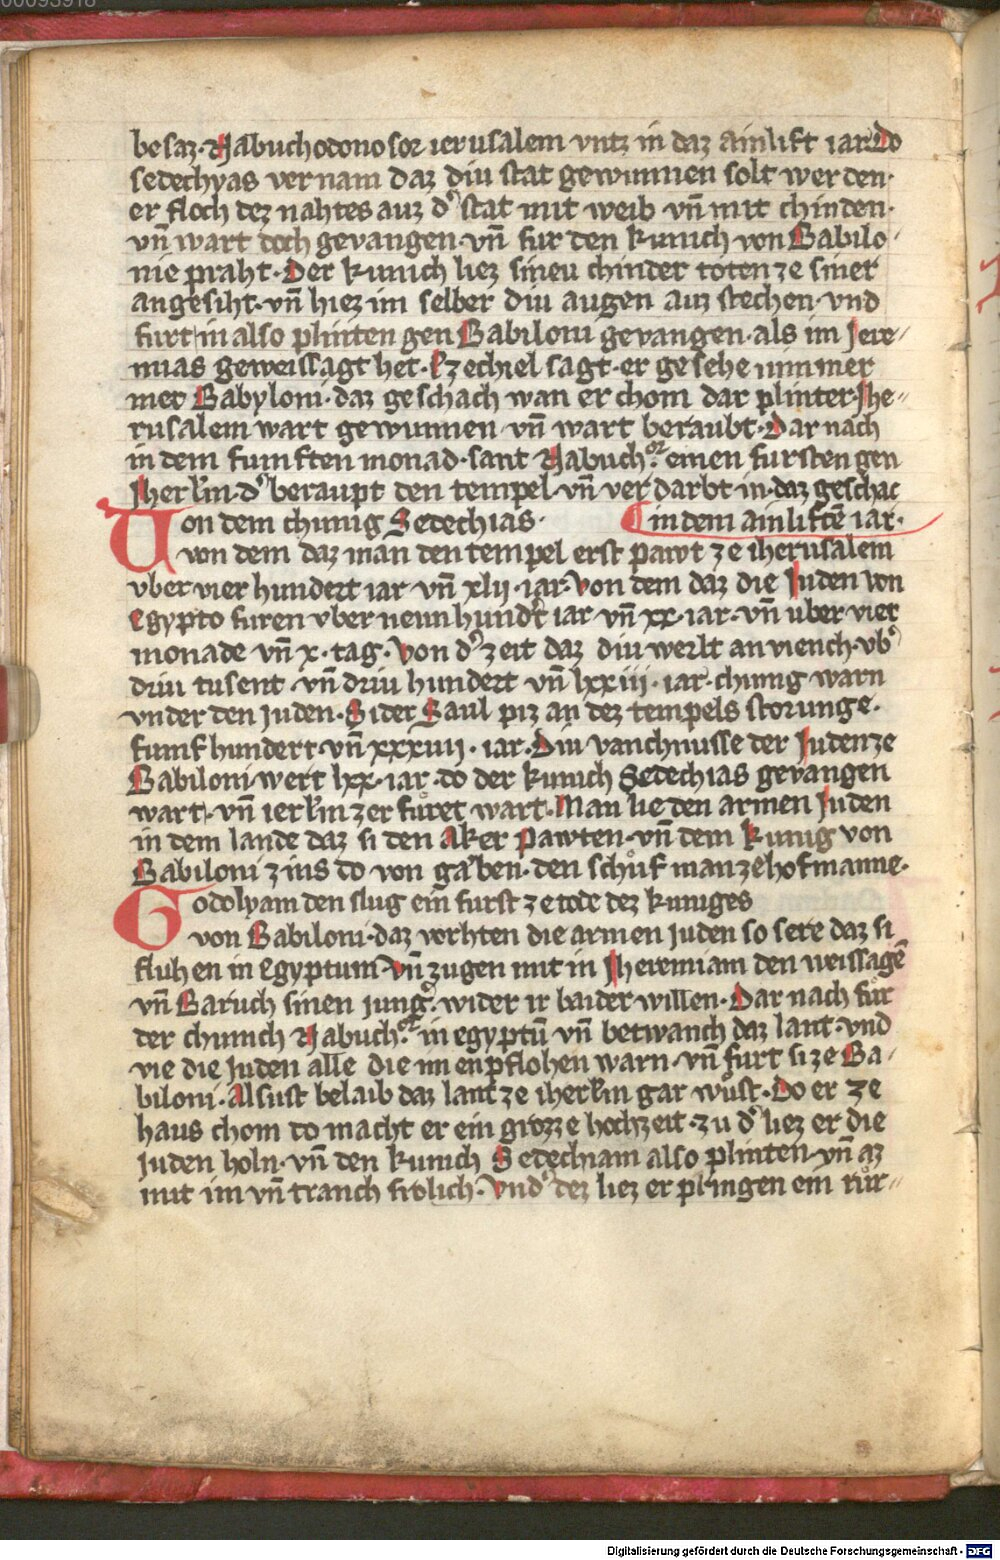 00093918
besaz. Nabuchodonosor ierusalem vntz in daz ainlift iar. Do
sedechyas vernam daz diu stat gewunnen solt werden.
er floch dez nahtes auz d͛ stat mit weib vn̄ mit chinden.
vn̄ wart doch gevangen. vn̄ fur den kunich von Babilo-
nie praht. Der kunich liez sineu chinder toten ze siner
angesiht. vn̄ hiez im selber diu augen auz stechen. vnd
furt in also plinten gen Babiloni gevangen. als im Jere-
mias geweissagt het. Ezechiel sagt. er gesehe nimmer
mer Babyloni. daz geschach wan er chom dar plinter. Jhe-
rusalem wart gewunnen vn̄ wart beraubt. Dar nach
in dem fumften monad. sant Nabuch.or einen fursten gen
Jherl̄m. d͛ beraupt den tempel. vn̄ verdarbt in. daz geschac
Von dem chunig Sedechias. in dem ainliftē iar.
von dem daz man den tempel erst pawt ze iherusalem
vber vier hundert iar vn̄ xlij. iar. Von dem daz die Juden von
Egypto furen vber neun hundt͛ iar vn̄ xx. iar. vn̄ uber vier
monade vn̄ x. tag. Von d͛ zeit daz diu werlt an viench. vb͛
driu tusent vn̄ driu hundert vn̄ lxxiij. iar. chunig warn
vnder den Juden. Sider Saul piz an dez tempels storunge.
fumf hundert. vn̄ xxxiiij. iar. Diu vanchnusse der Juden ze
Babiloni wert lxx. iar. do der kunich Sedechias gevangen
wart. vn̄ ierl̄m zerfuͦret wart. Man lie den armen Juden
in dem lande daz si den Aker pawten. vn̄ dem kunig von
Babiloni zins do von gaͤben. den schuͦf man ze hofmanne.
Godolyam den slug ein furst ze tode dez kuniges
von Babiloni. daz vorhten die armen Juden so sere daz si
fluhen in Egyptum. Vn̄ zugen mit in Jheremiam den weissagē
vn̄ Baruch sinen iung͛. wider ir baider willen. Dar nach fuͦr
der chunich Nabuch.or in egyptū vn̄ betwanch daz lant. vnd
vie die Juden alle die im enpflohen warn. vn̄ furt si ze Ba-
biloni. Alsust belaib daz lant ze iherl̄m gar wuͤst. Do er ze
haus chom do macht er ein grozze hochzeit. zu d͛ liez er die
Juden holn. vn̄ den kunich Sedechiam also plinten. vn̄ az
mit im vn̄ tranch frolich. Vnd͛ dez liez er pringen ein ruͤr-
Digitalisierung gefördert durch die Deutsche Forschungsgemeinschaft - DFG